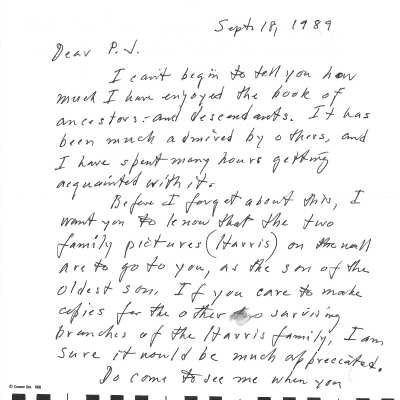 Sept. 18, 1989
Dear P.J.
I can't begin to tell you how
much I have enjoyed the book of
ancestors - and descendants. It has
been much admired by others, and
I have spent many hours getting
acquainted with it.
Before I forget about this, I
want you to know that the two
family pictures (Harris) on the wall
are to go to you, as the son of the
oldest son. If you care to make
copies for the other two surviving
branches of the Harris family, I am
sure it would be much appreciated.
Do come to see me when you